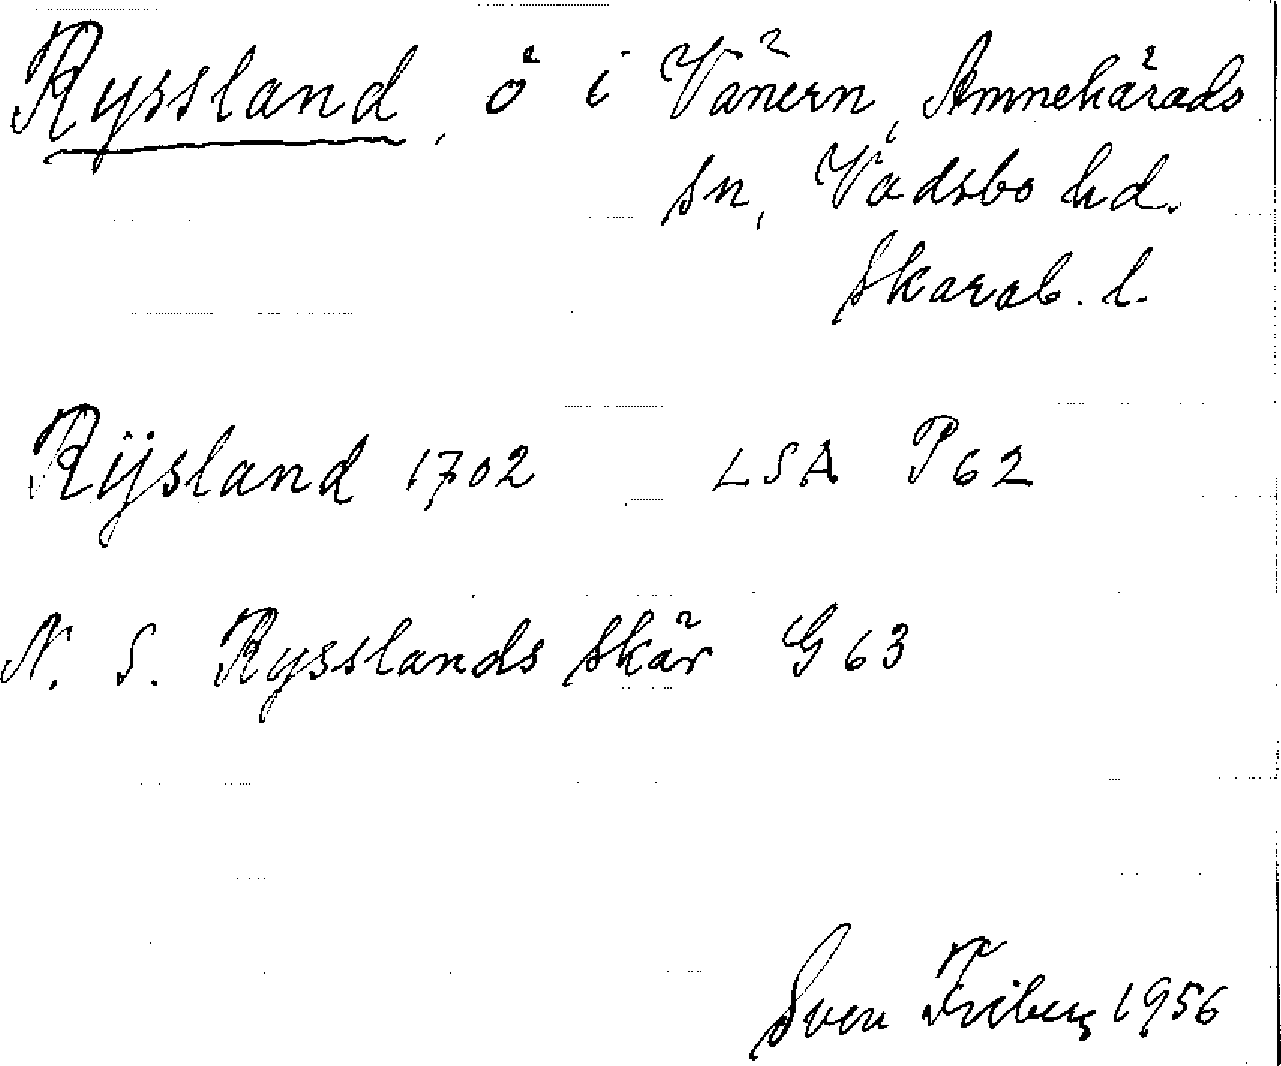 Ryssland, ö i Vänern, Amnehärads
sn, Vadsbo hd.
Skarab. l.
Rijsland 1702 LSA P62
N. S. Rysslands skär G63
Sven Friberg 1956